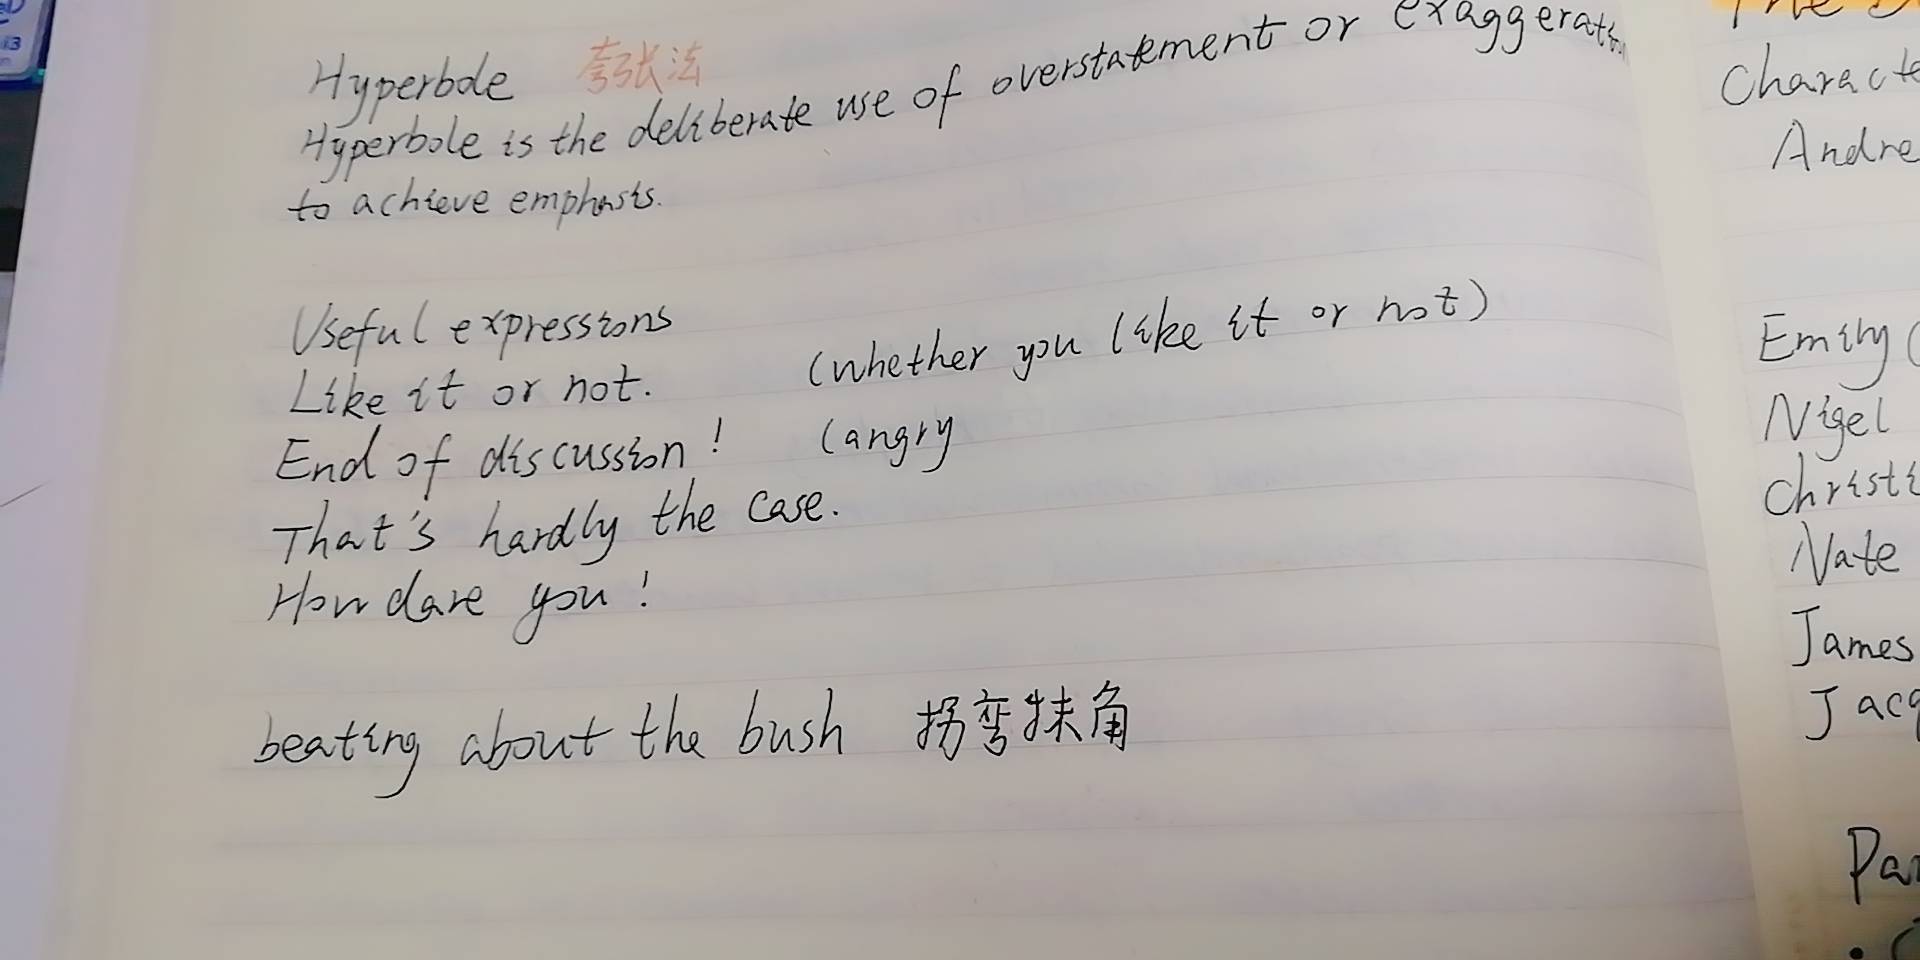 Hyperbole 夸张法
Hyperbole is the deliberate use of overstatement or exaggeration
to achieve emphasis.
Useful expressions
Like it or not. (whether you like it or not)
End of discussion! (angry
That's hardly the case.
How dare you!
beating about the bush 拐弯抹角
Characte
Andre
Emily (
Nigel
Christi
Nate
James
Jacq